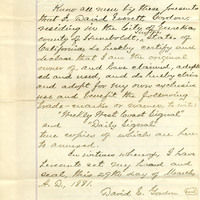 Know all men by these presents
that I, David Everett Gordon
residing in the City of Eureka
county of Humboldt, State of
California, do hereby certify and
declare that I am the original
owner of and have claimed, adopt-
ed and used, and do hereby claim
and adopt for my own exclusive
use and benefit the following
trade-marks or names to wit:
"Weekly West Coast Signal"
and "Daily Signal"
true copies of which are here-
to annexed.
In witness whereof, I have
hereunto set my hand and
seal, this 29th day of March
A.D. 1881.
David E. Gordon